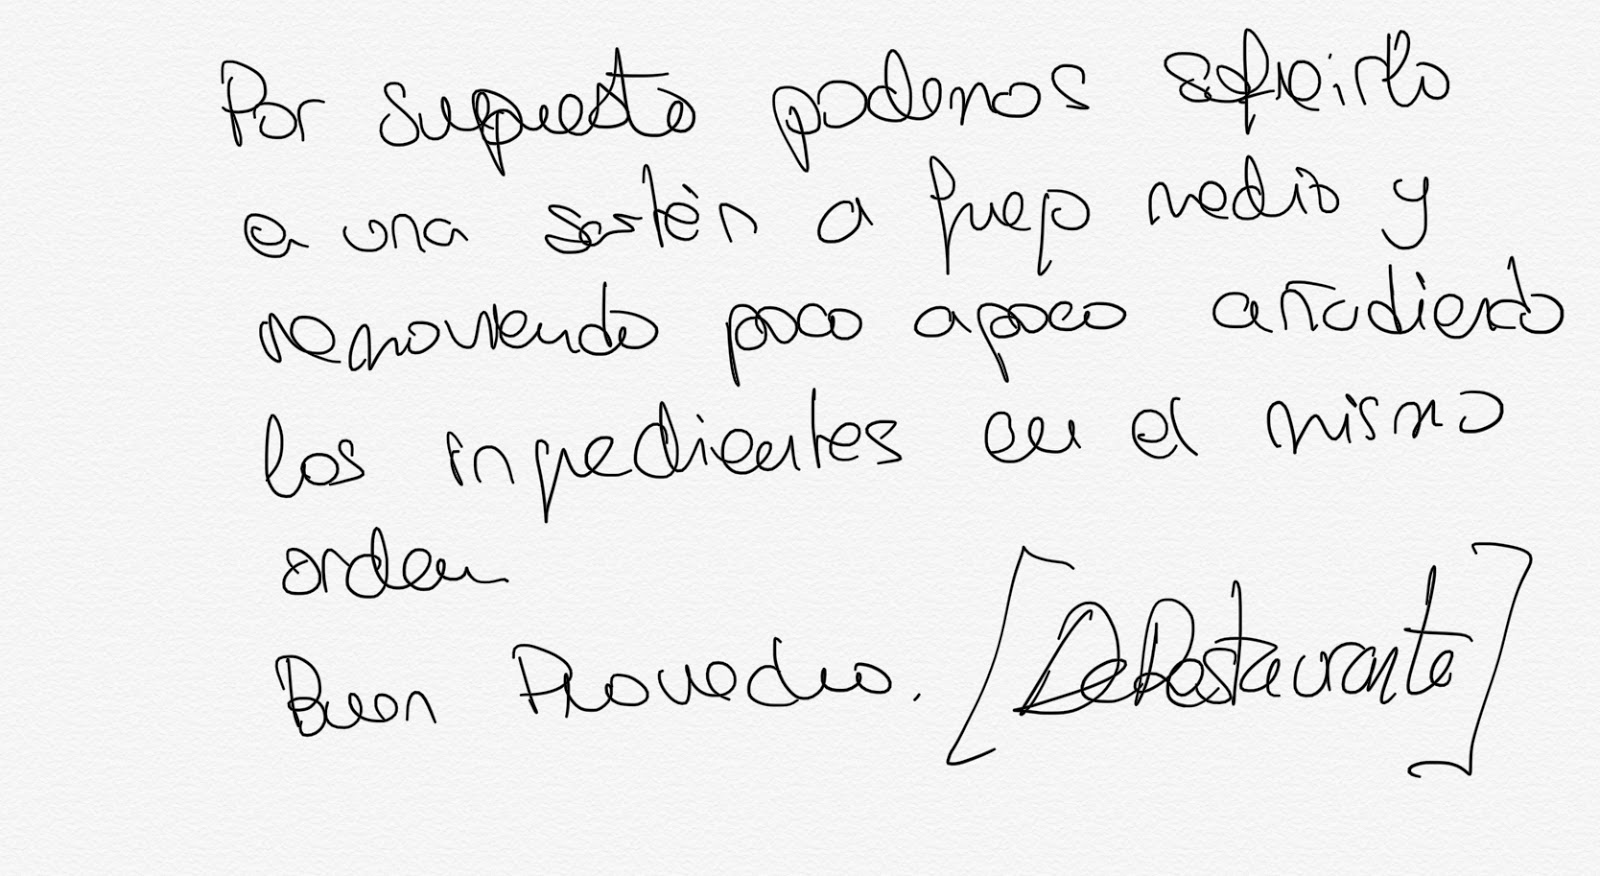 Por supuesto podemos sofreirlo
en una sartén a fuego medio y
removiendo poco a poco añadiendo
los ingredientes en el mismo
orden
Buen Provecho. [DeRestaurante]